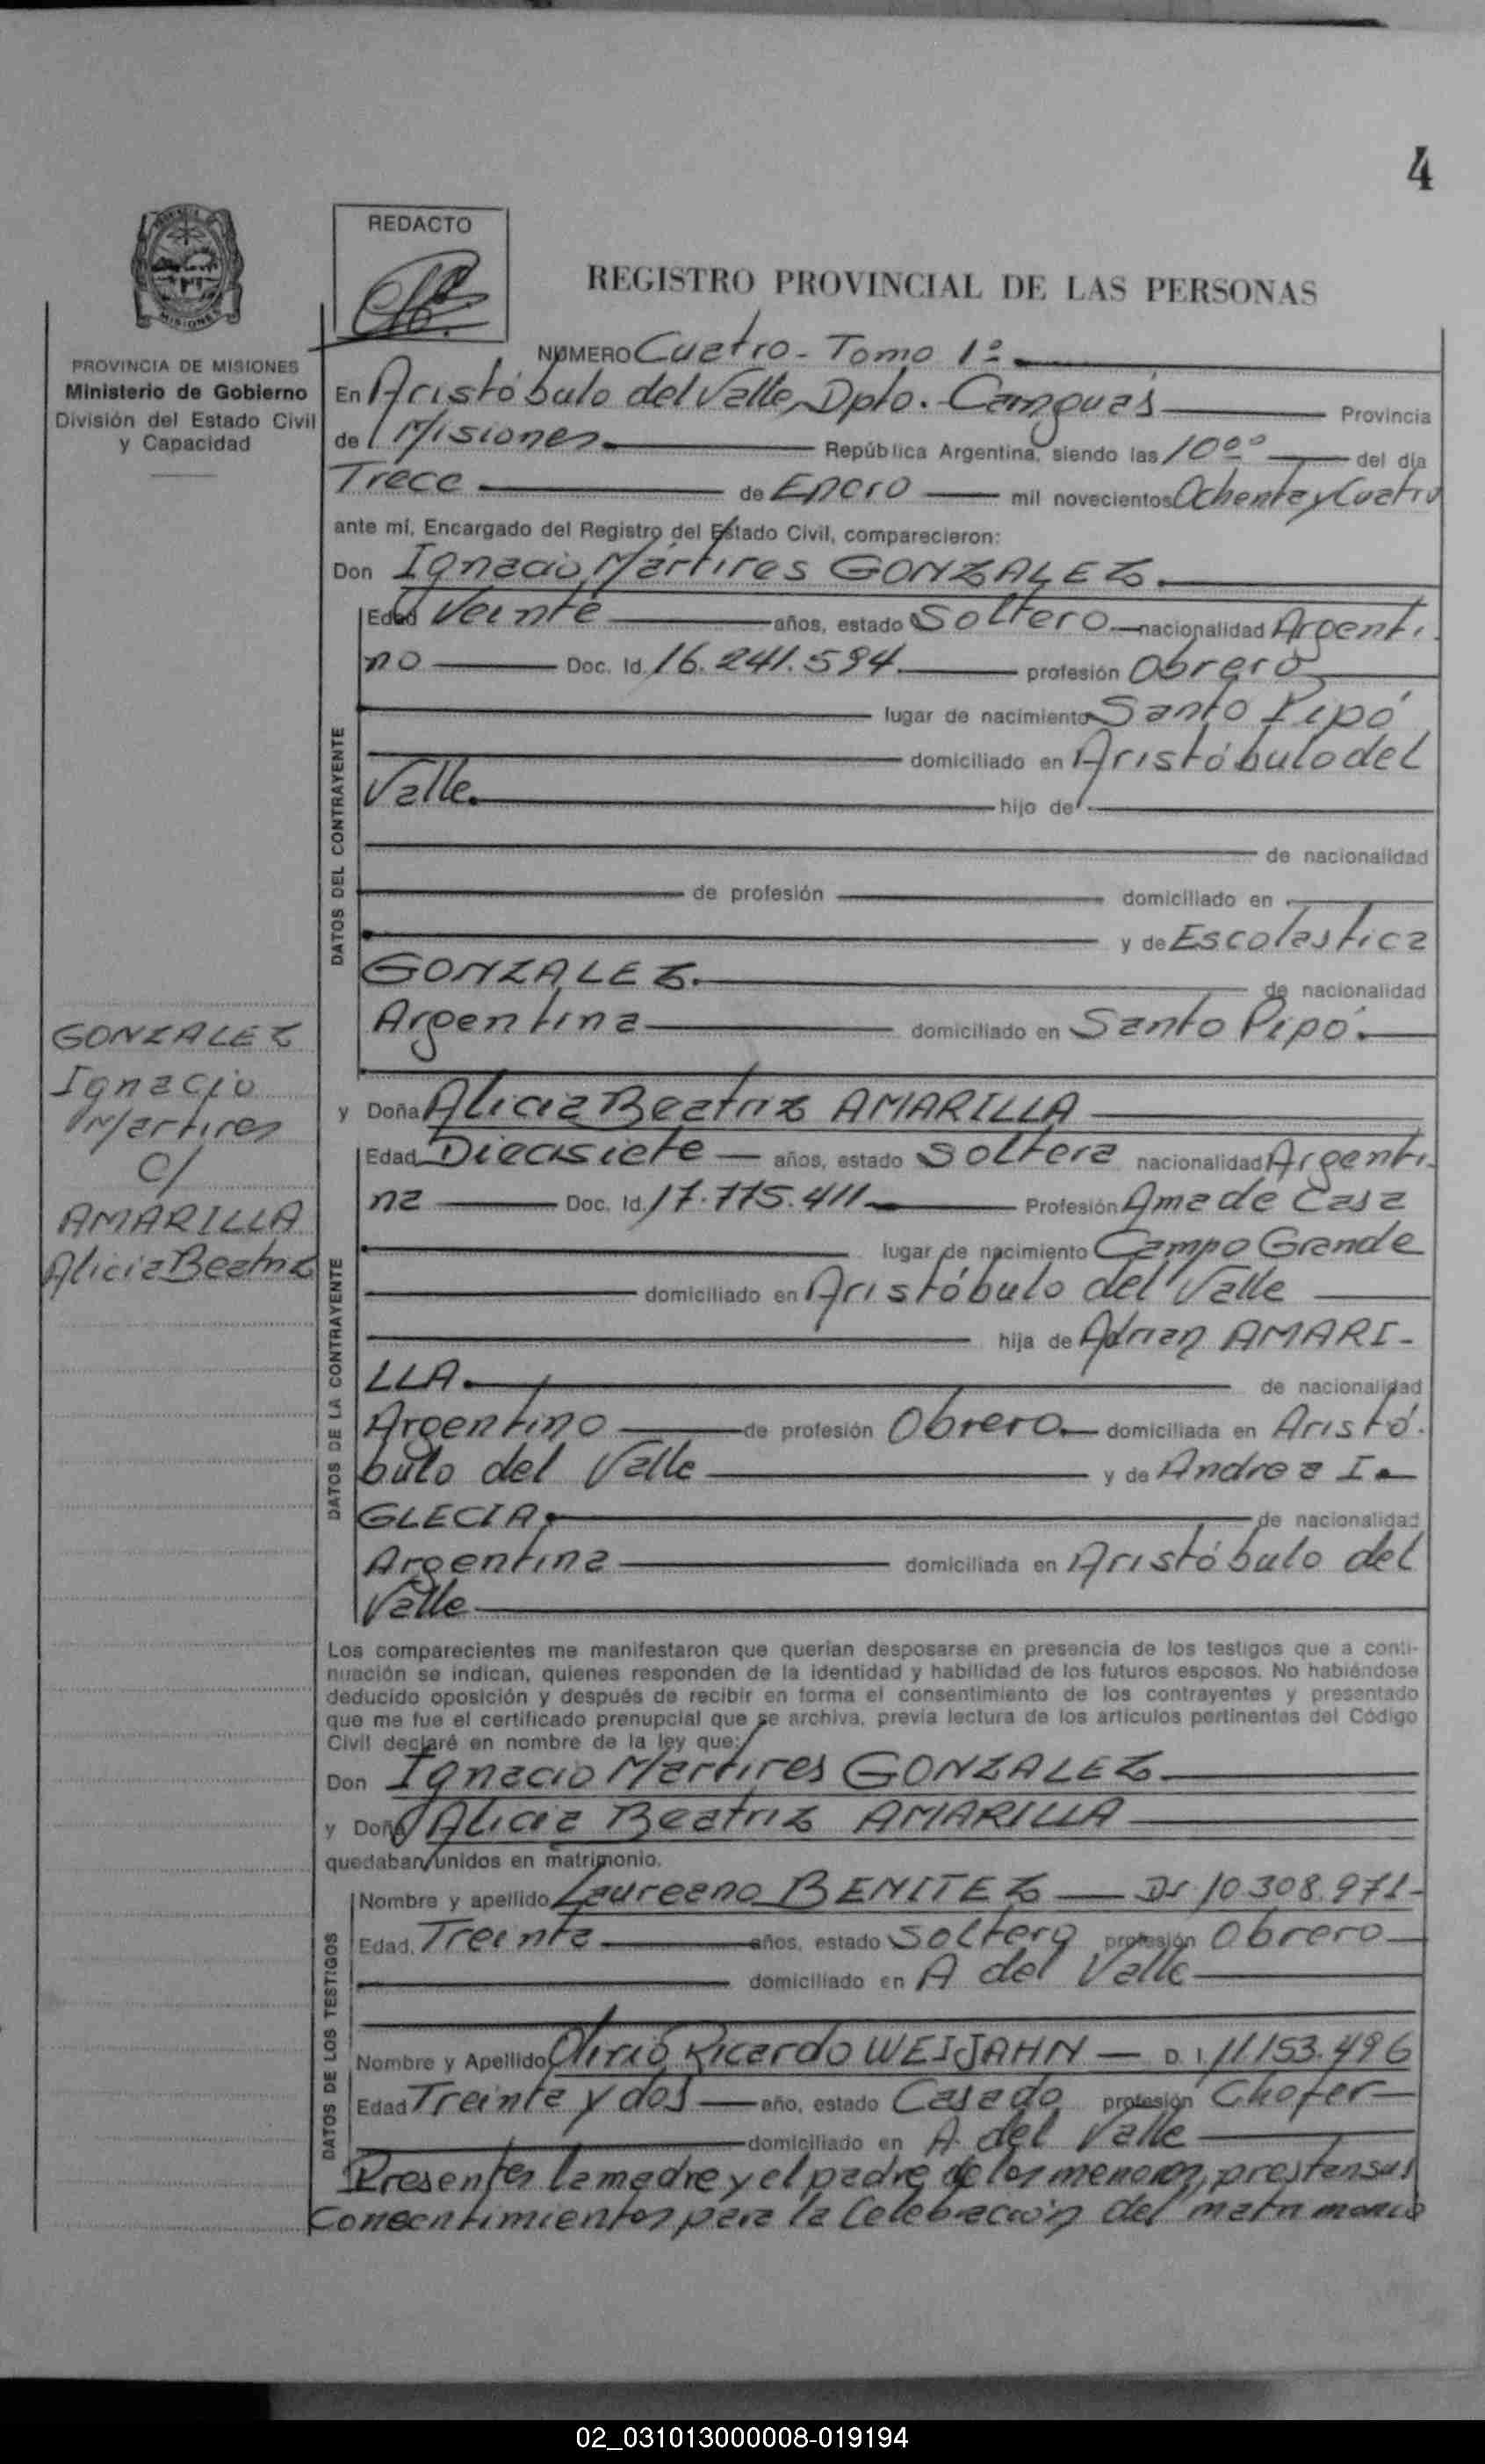 4
REDACTO
REGISTRO PROVINCIAL DE LAS PERSONAS
MISIONES
PROVINCIA DE MISIONES
Ministerio de Gobierno
División del Estado Civil
y Capacidad
NUMERO Cuatro - Tomo 1º
En Aristóbulo del Valle, Dpto. Cainguás Provincia
de Misiones República Argentina, siendo las 10ºº del día
Trece de Enero mil novecientos Ochenta y Cuatro
ante mí, Encargado del Registro del Estado Civil, comparecieron:
Don Ignacio Mártires GONZALEZ.
Edad Veinte años, estado Soltero nacionalidad Argenti-
no Doc. Id. 16.241.594 profesión Obrero
lugar de nacimiento Santo Pipó
domiciliado en Aristóbulo del
Valle. hijo de
de nacionalidad
de profesión domiciliado en
y de Escolastica
GONZALEZ. de nacionalidad
Argentina domiciliado en Santo Pipó.
DATOS DEL CONTRAYENTE
GONZALEZ
Ignacio
Martires
c/
AMARILLA
Alicia Beatriz
y Doña Alicia Beatriz AMARILLA
Edad Diecisiete años, estado Soltera nacionalidad Argenti-
na Doc. Id. 17.775.411 Profesión Ama de Casa
lugar de nacimiento Campo Grande
domiciliado en Aristóbulo del Valle
hija de Adrian AMARI-
LLA. de nacionalidad
Argentino de profesión Obrero domiciliada en Aristó-
bulo del Valle y de Andrea I-
GLECIA. de nacionalidad
Argentina domiciliada en Aristóbulo del
Valle
DATOS DE LA CONTRAYENTE
Los comparecientes me manifestaron que querían desposarse en presencia de los testigos que a conti-
nuación se indican, quienes responden de la identidad y habilidad de los futuros esposos. No habiéndose
deducido oposición y después de recibir en forma el consentimiento de los contrayentes y presentado
que me fue el certificado prenupcial que se archiva, previa lectura de los artículos pertinentes del Código
Civil declaré en nombre de la ley que:
Don Ignacio Martires GONZALEZ
y Doña Alicia Beatriz AMARILLA
quedaban unidos en matrimonio.
Nombre y apellido Laureano BENITEZ DI 10.308.971-
Edad. Treinta años, estado Soltero profesión Obrero
domiciliado en A del Valle
Nombre y Apellido Ricardo WEIJAHN D.I. 11.153.496
Edad Treinta y dos año, estado Casado profesión Chofer
domiciliado en A. del Valle
DATOS DE LOS TESTIGOS
Presentes la madre y el padre de los menores, prestan sus
Consentimientos para la Celebración del matrimonio
02_031013000008-019194